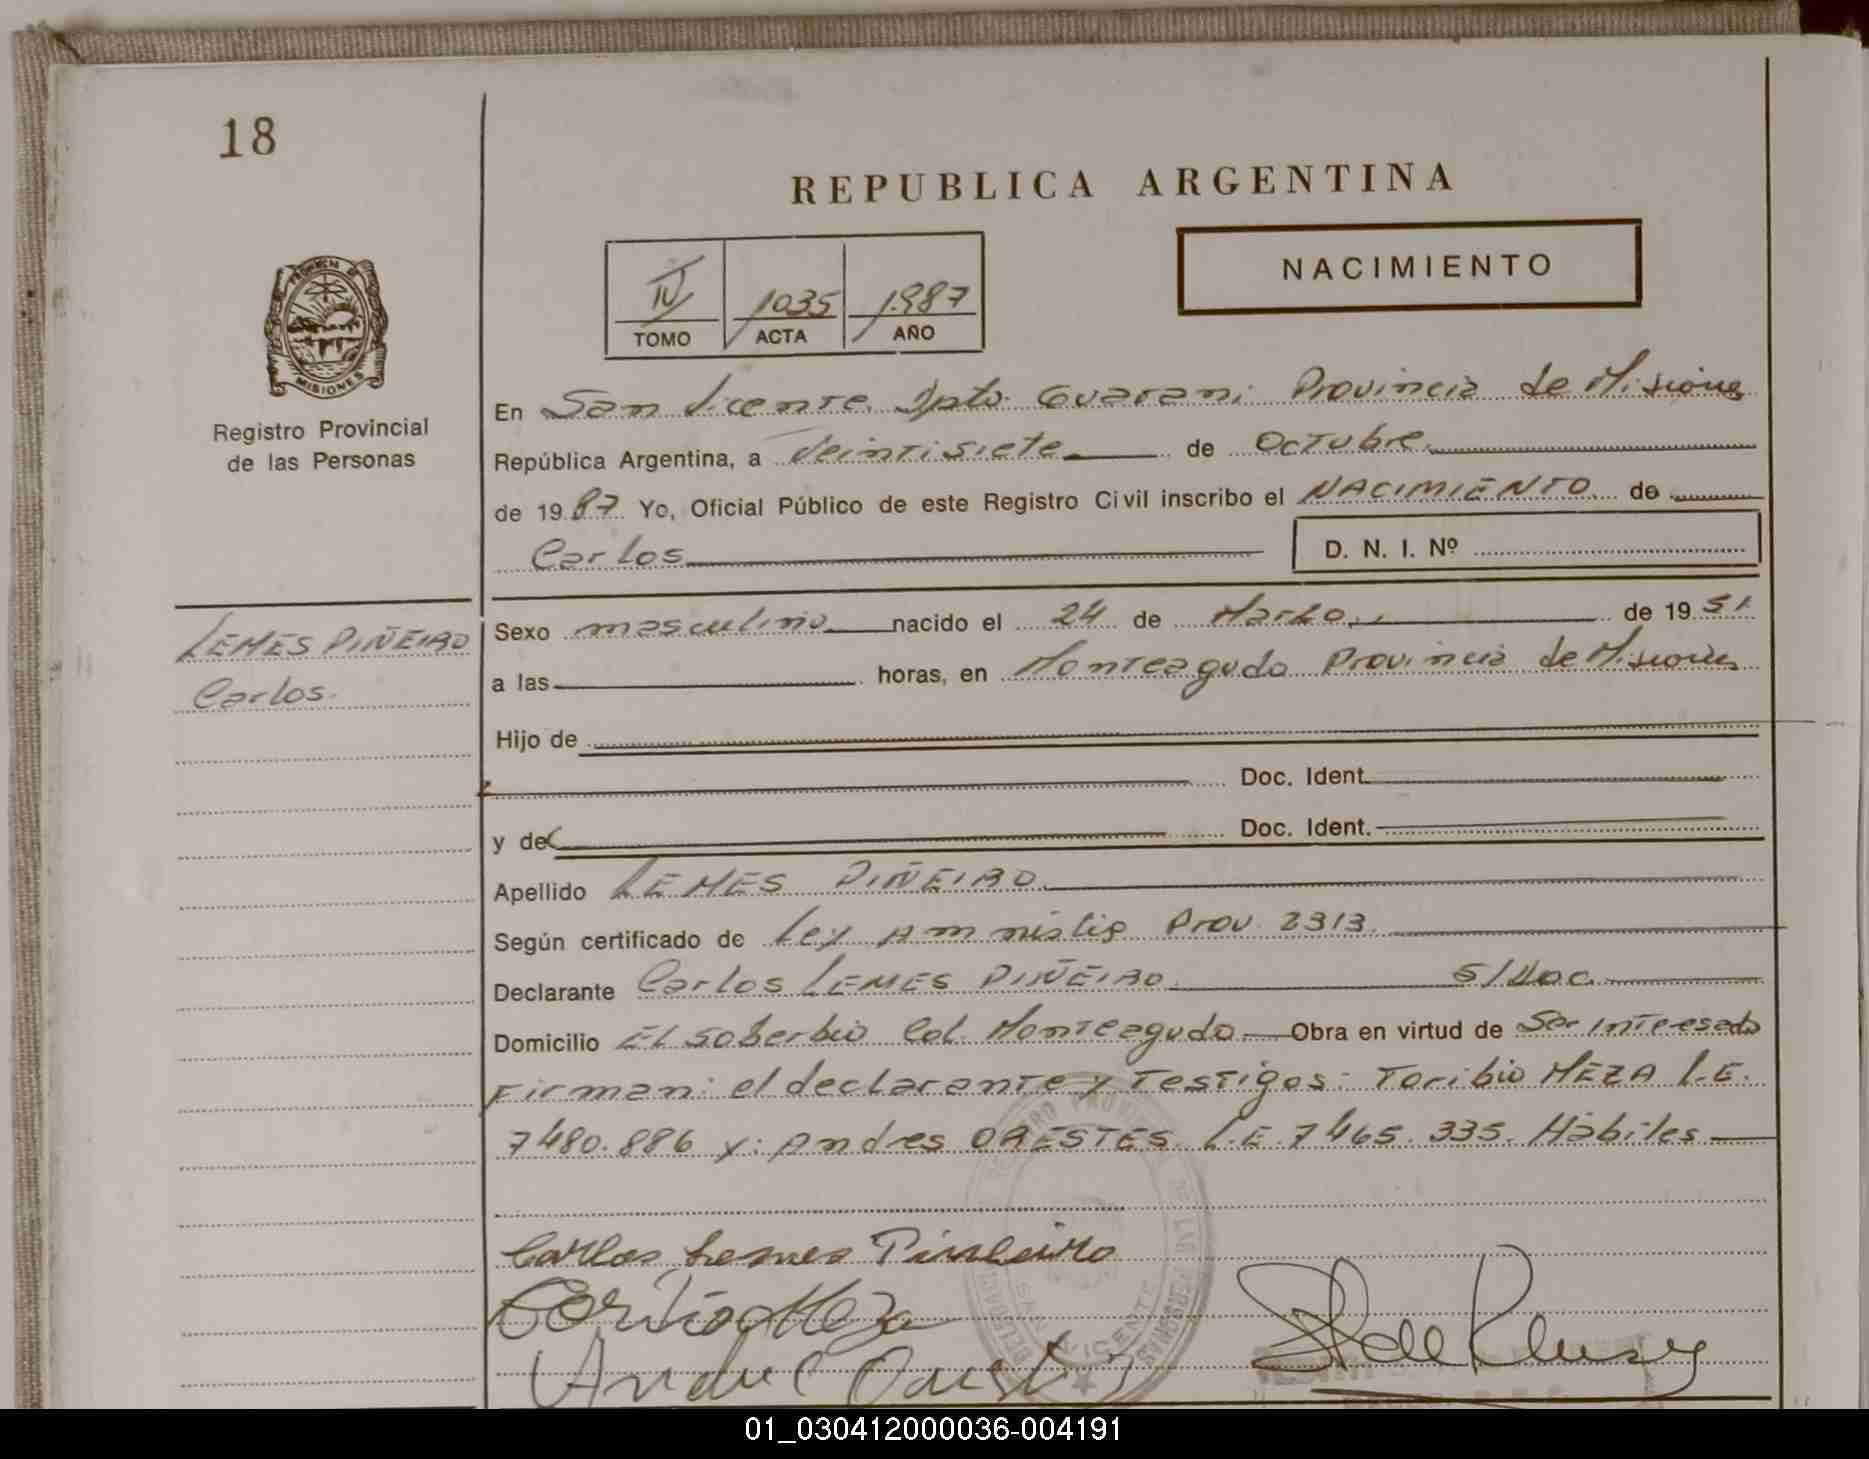 18
REPUBLICA ARGENTINA
NACIMIENTO
IV 1035 1.987
TOMO ACTA AÑO
PROVINCIA DE
MISIONES
Registro Provincial
de las Personas
En San Vicente Dpto. Guarani Provincia de Misiones
República Argentina, a Veintisiete de Octubre
de 1987 Yo, Oficial Público de este Registro Civil inscribo el NACIMIENTO de
Carlos D. N. I. Nº
LEMES PIÑEIRO
Carlos.
Sexo masculino nacido el 24 de Marzo de 1951.
a las horas, en Monteagudo Provincia de Misiones
Hijo de
Doc. Ident.
y de Doc. Ident.
Apellido LEMES PIÑEIRO
Según certificado de Ley Amnistia Prov. 2313.
Declarante Carlos LEMES PIÑEIRO S/Doc.
Domicilio El Soberbio Col. Monteagudo Obra en virtud de Ser interesado
Firman: el declarante y Testigos: Toribio MEZA L.E.
7480.886 y: Andres ORESTES L.E. 7465.335. Habiles
Carlos Lemes Pinheiro
Toribio Meza
01_030412000036-004191